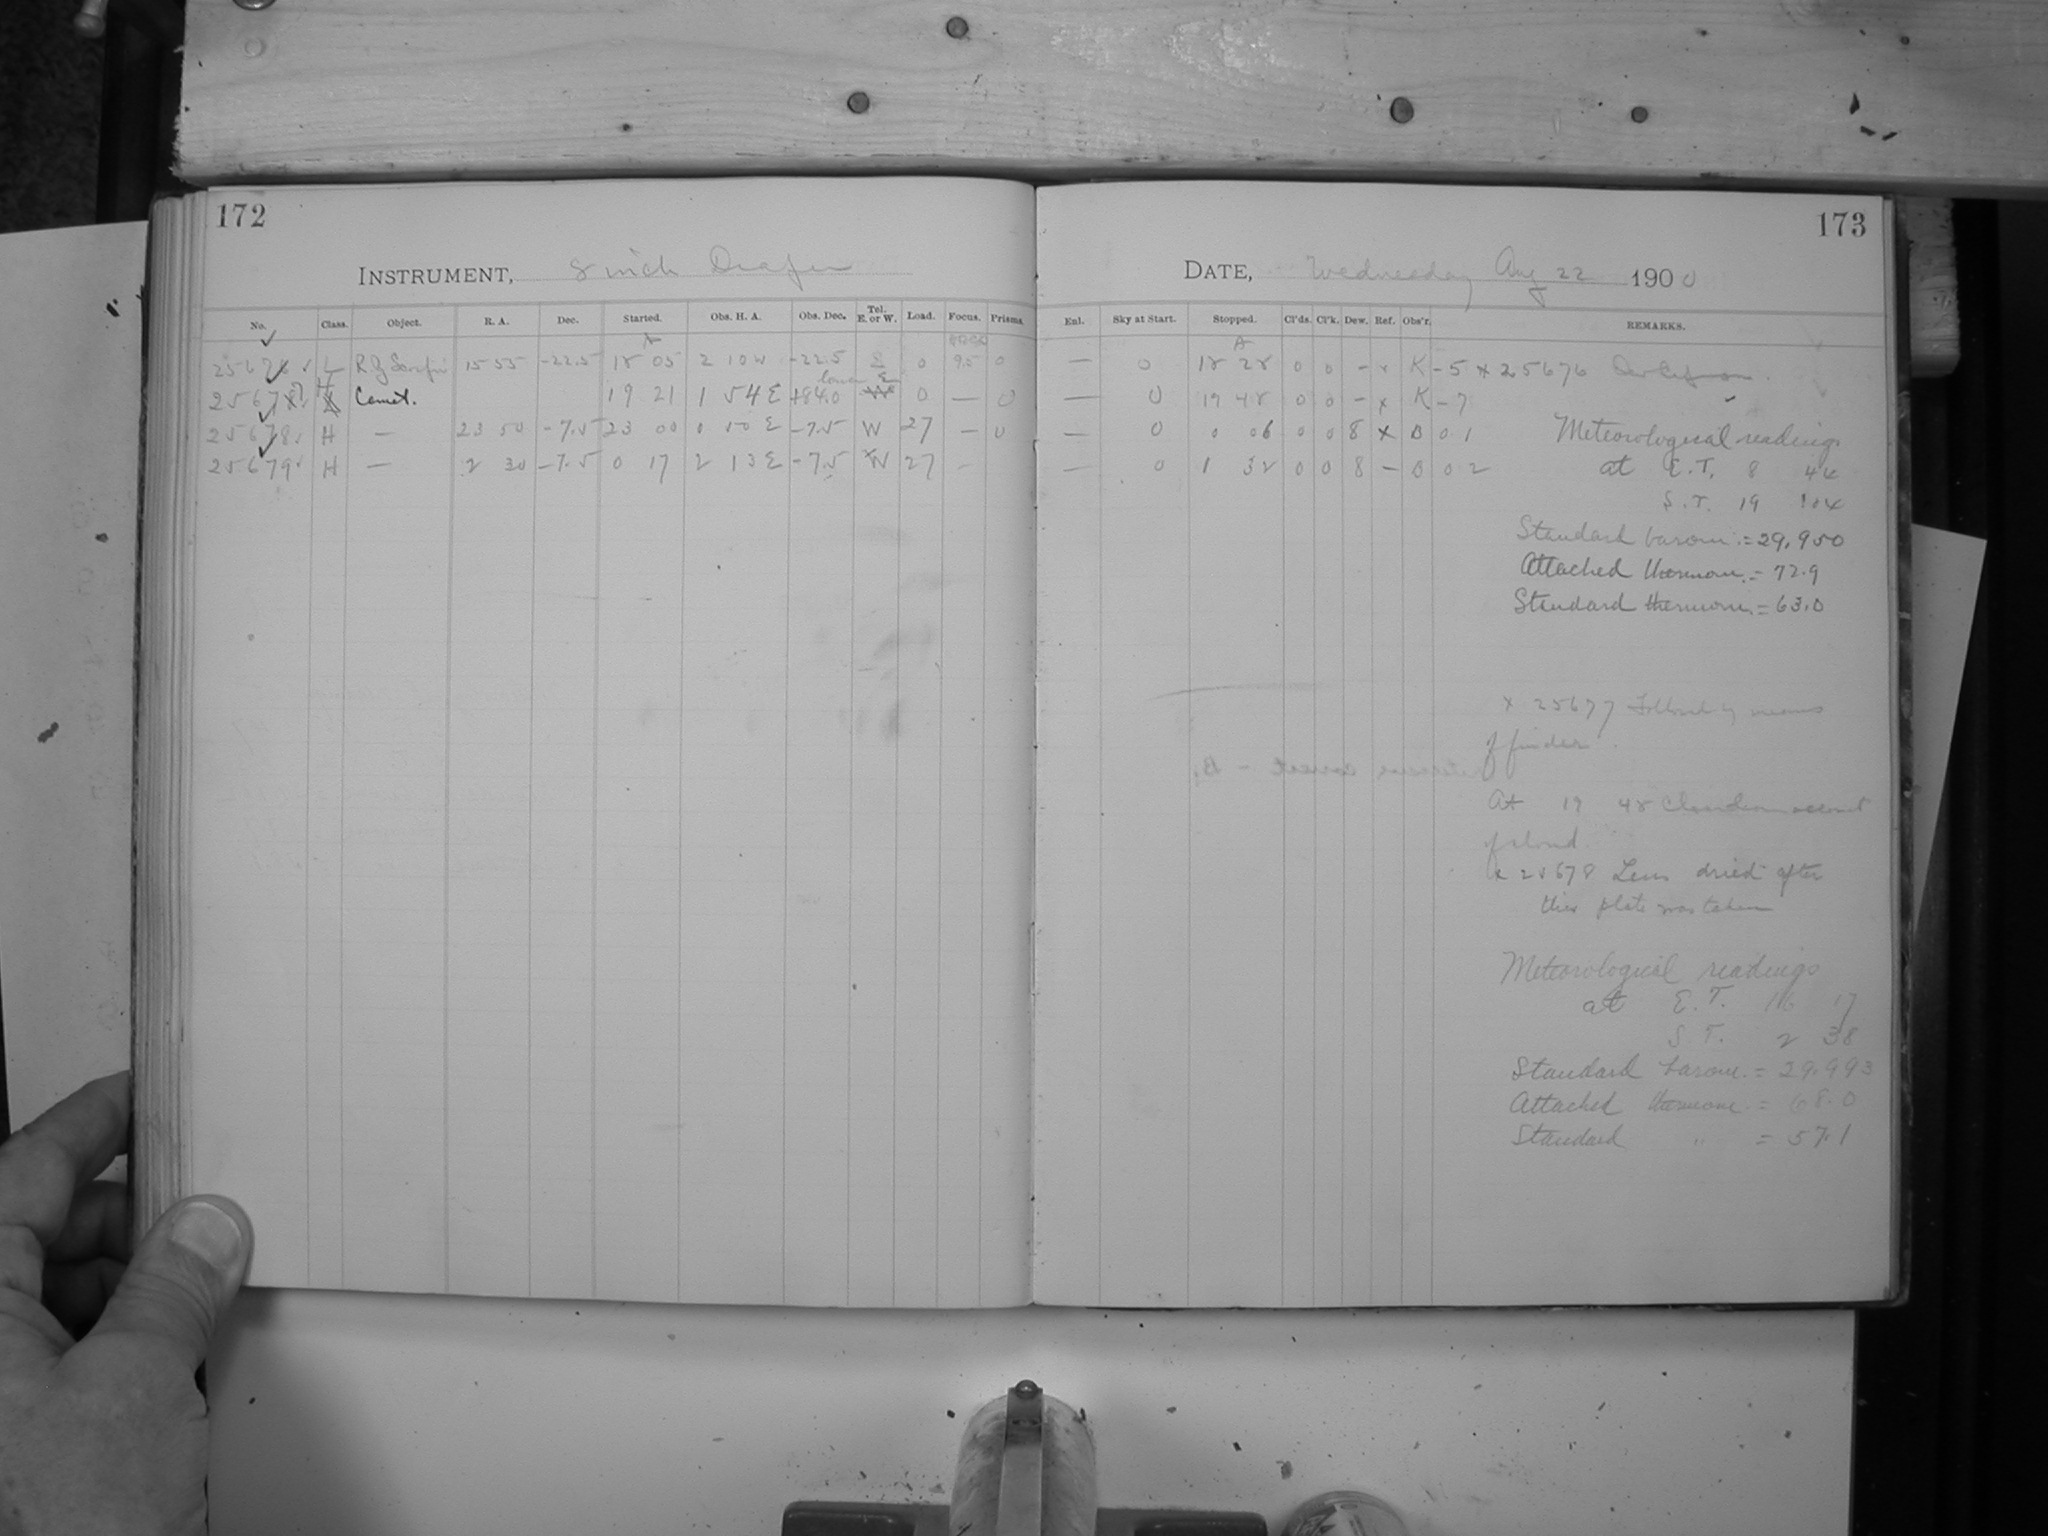 172
INSTRUMENT, 8 inch Draper
No. Class. Object. R. A. Dec. Started. Obs. H. A. Obs. Dec. Tel. E. or W. Load. Focus. Prisms.
25676 L 15 55 -22.5 18 05 2 10 W -22.5 E 0 9.5 0
lower E
25677 Comet. 19 21 1 54 E +84.0 W 0 — 0
25678 H — 23 50 -7.5 23 00 0 50 E -7.5 W 27 — 0
25679 H — 2 30 -7.5 0 17 2 13 E -7.5 W 27 —
173
DATE, Wednesday Aug 22 1900
Enl. Sky at Start. Stopped. Cl'ds. Cl'k. Dew. Ref. Obs'r. REMARKS.
— 0 18 28 0 0 - x K - 5 x 25676
— 0 19 48 0 0 - x K - 7
— 0 0 06 0 0 8 x B 0 1 Meteorological readings
— 0 1 32 0 0 8 - B 0 2 at E.T. 8 44
S.T. 19 104
Standard barom. = 29.950
Attached thermom. = 72.9
Standard thermom. = 63.0
x 25677 Followed by means
of finder.
At 19 48 Closed on account
of cloud.
x 25678 Lens dried after
this plate was taken
Meteorological readings
at E.T. 16 17
S T. 2 38
Standard barom. = 29.993
Attached thermom. = 68.0
Standard " = 57.1